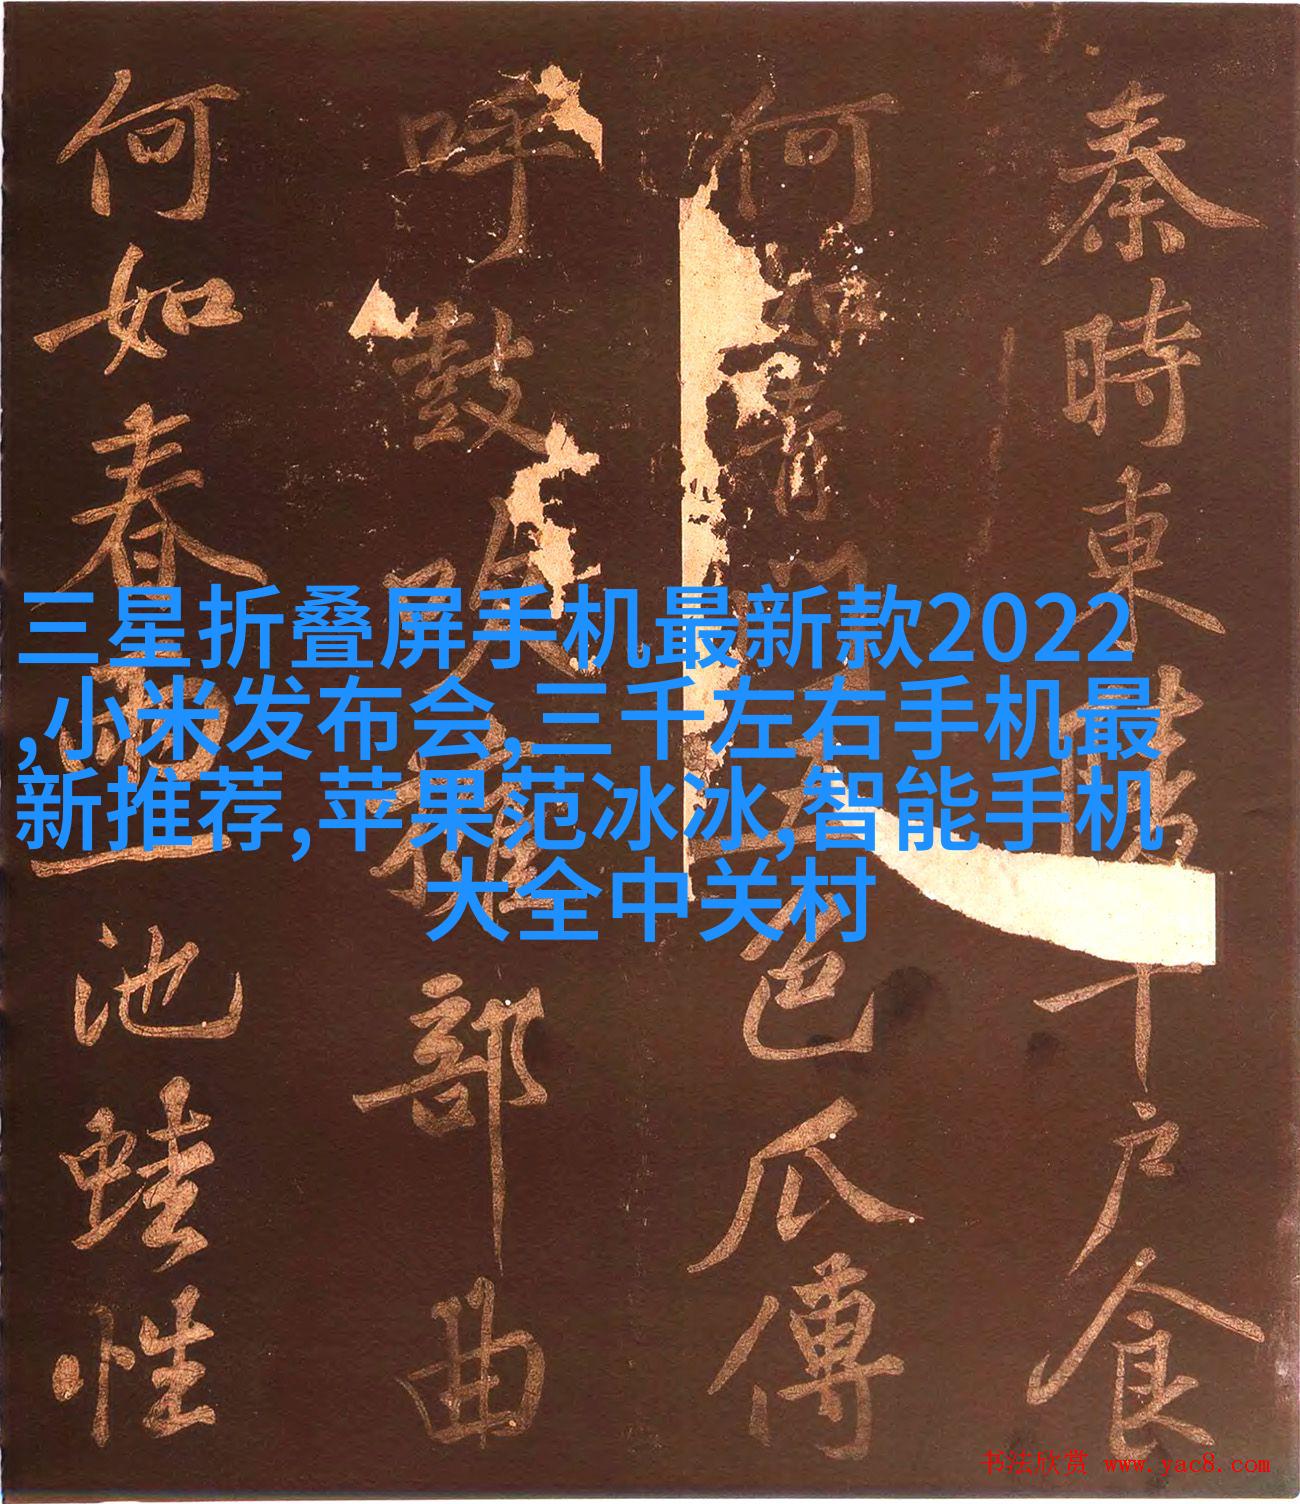 秦時東陵千戶食
何如青門五色瓜傳
呼鼓吹雜部曲
何如春池蛙性
三星折叠屏手机最新款2022
,小米发布会,三千左右手机最
新推荐,苹果范冰冰,智能手机
大全中关村
书法欣赏 www.yac8.com